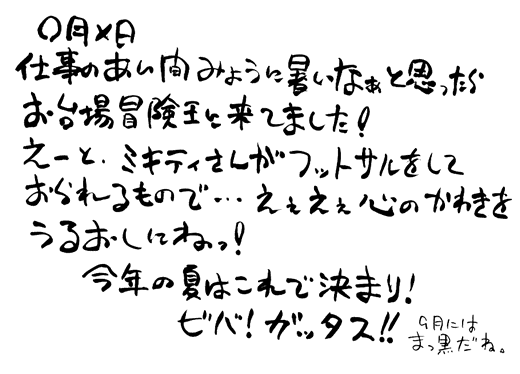 〇月×日
仕事のあい間みょうに暑いなぁと思ったら
お台場冒険王に来てました!
えーと、ミキティさんがフットサルをして
おられるもので…ええええ心のかわきを
うるおしにねっ!
今年の夏はこれで決まり!
ビバ!ガッタス!!
9月には
まっ黒だね。